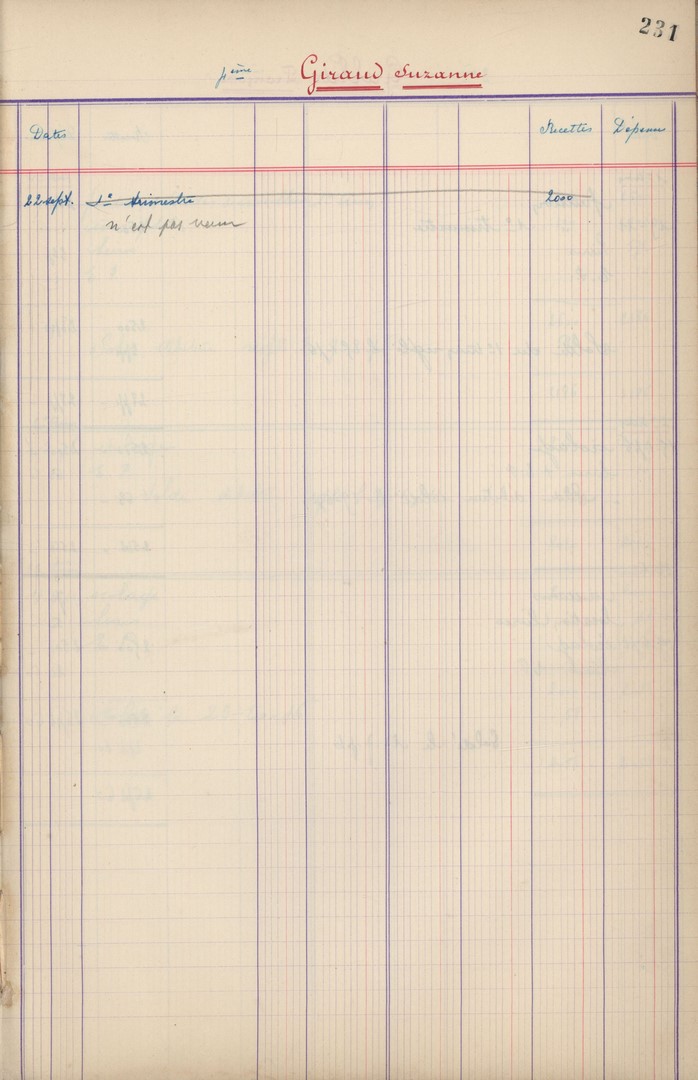 231
Giraud Suzanne
Dates Recettes Dépenses
22 sept. 1er trimestre 2000
n'est pas venue